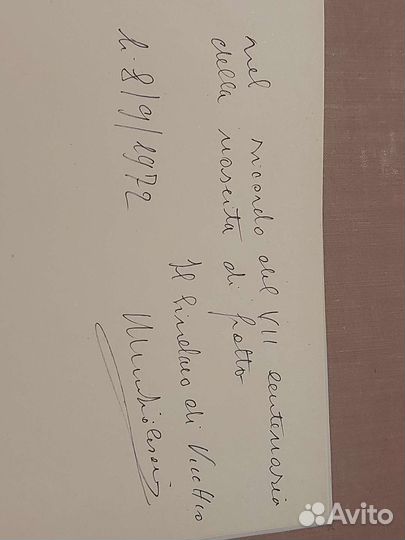 nel ricordo del VII centenario
della nascita di Giotto
Il Sindaco di Vicchio
li. 8/9/1972
Avito